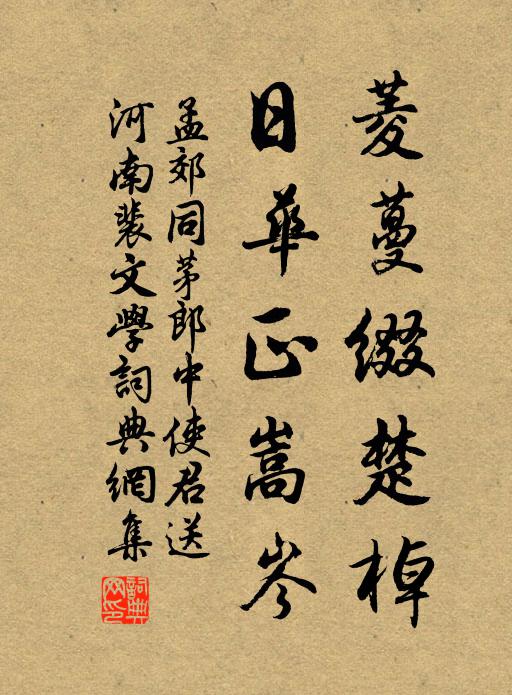 菱蔓綴楚棹
日華正嵩岑
孟郊同茅郎中使君送
河南裴文學詞典網集
詞典网印